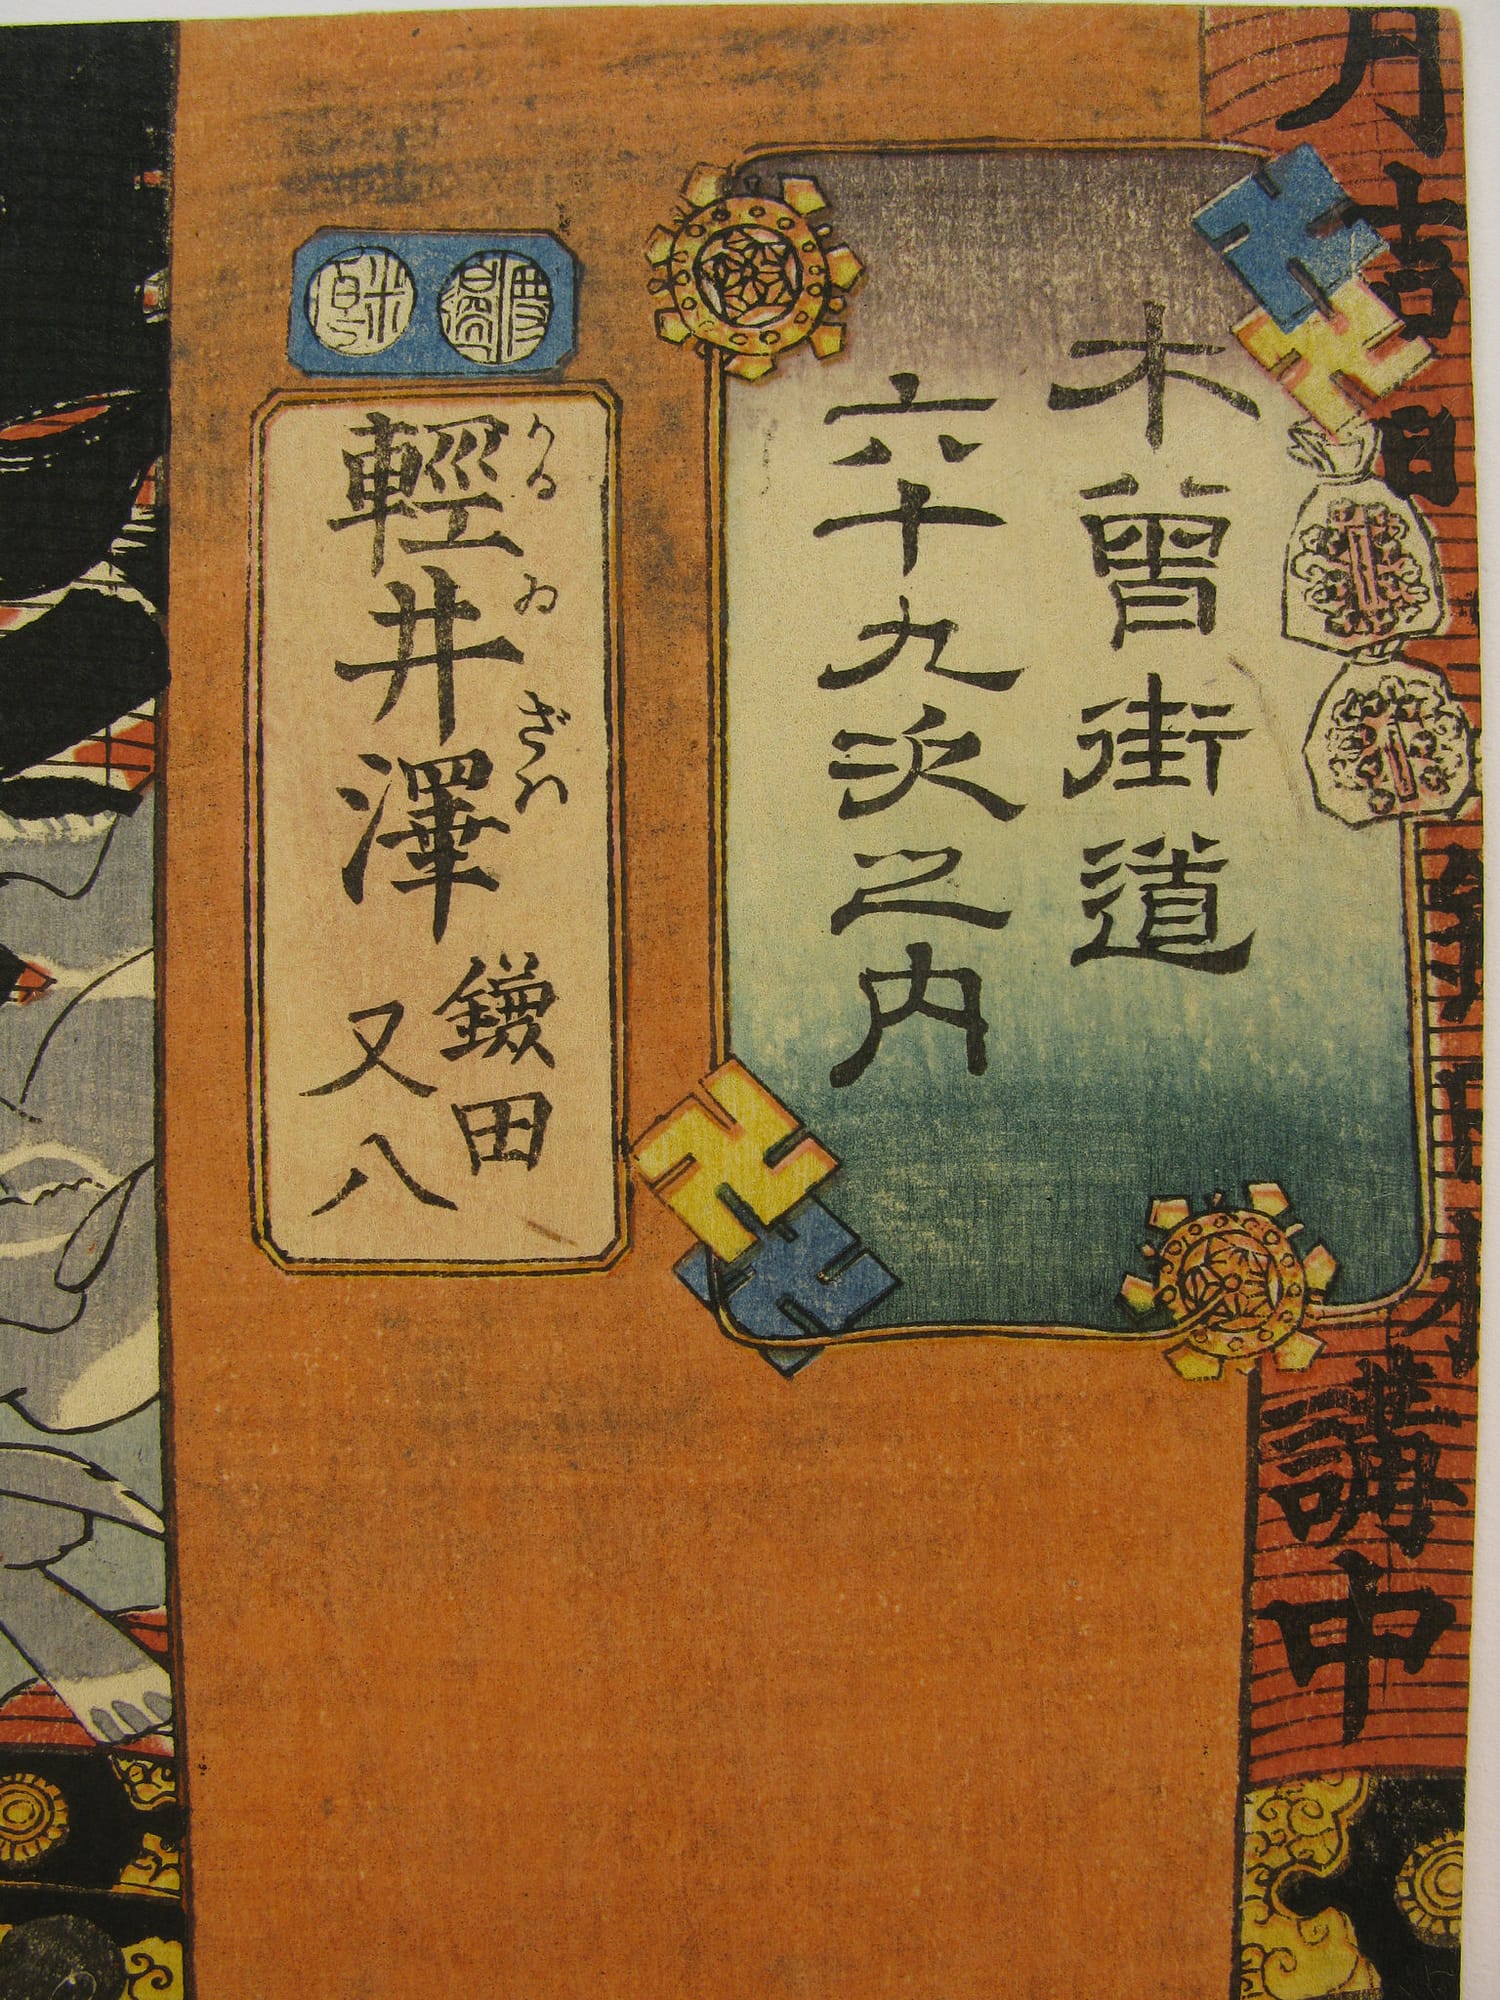 月吉日
講中
木曾街道
六十九次之内
輕井澤
かるゐざは
鎌田
又八